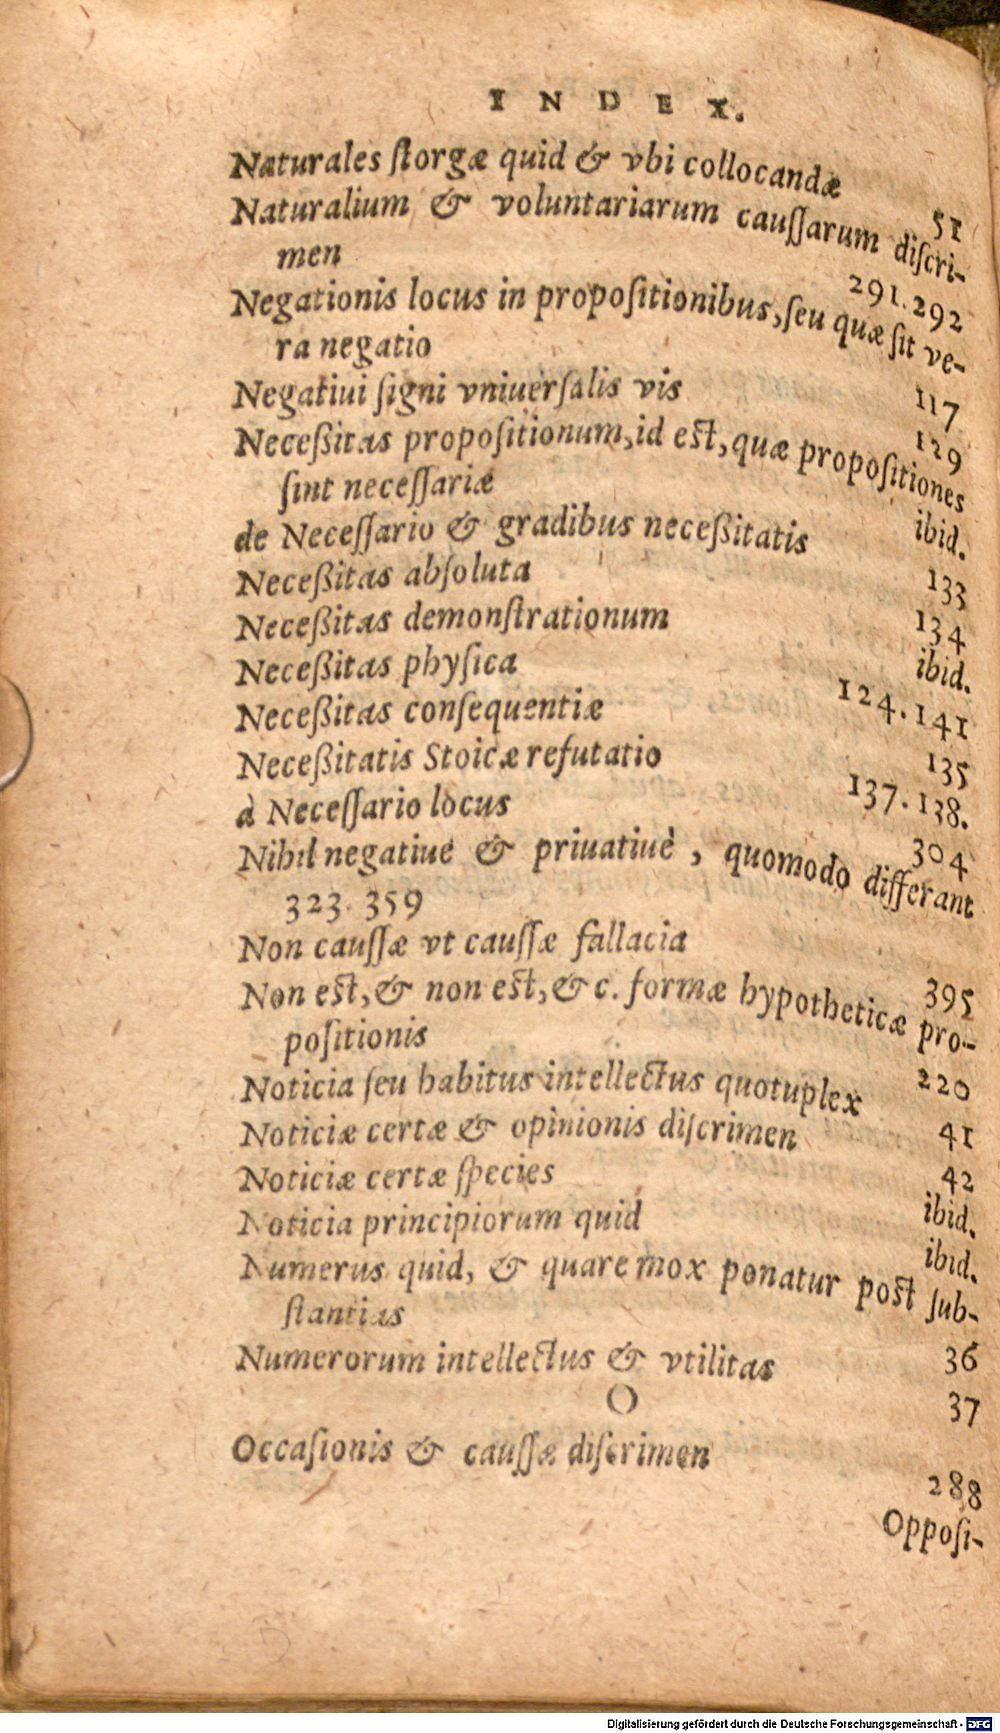 INDEX.
Naturales ſtorgæ quid & vbi collocandæ 51
Naturalium & voluntariarum cauſſarum diſcri-
men 291.292
Negationis locus in propoſitionibus, ſeu quæ ſit ve-
ra negatio 117
Negatiui ſigni vniuerſalis vis 129
Neceßitas propoſitionum, id eſt, quæ propoſitiones
ſint neceſſariæ ibid.
de Neceſſario & gradibus neceßitatis 133
Neceßitas abſoluta 134
Neceßitas demonſtrationum ibid.
Neceßitas phyſica 124.141
Neceßitas conſequentiæ 135
Neceßitatis Stoicæ refutatio 137.138.
à Neceſſario locus 304
Nihil negatiuè & priuatiuè, quomodo differant
323. 359
Non cauſſæ vt cauſſæ fallacia 395
Non eſt, & non eſt, &c. formæ hypotheticæ pro-
poſitionis 220
Noticia ſeu habitus intellectus quotuplex 41
Noticiæ certæ & opinionis diſcrimen 42
Noticiæ certæ ſpecies ibid.
Noticia principiorum quid ibid.
Numerus quid, & quare mox ponatur poſt ſub-
ſtantias 36
Numerorum intellectus & vtilitas 37
O
Occaſionis & cauſſæ diſcrimen 288
Oppoſi-
Digitalisierung gefördert durch die Deutsche Forschungsgemeinschaft - DFG